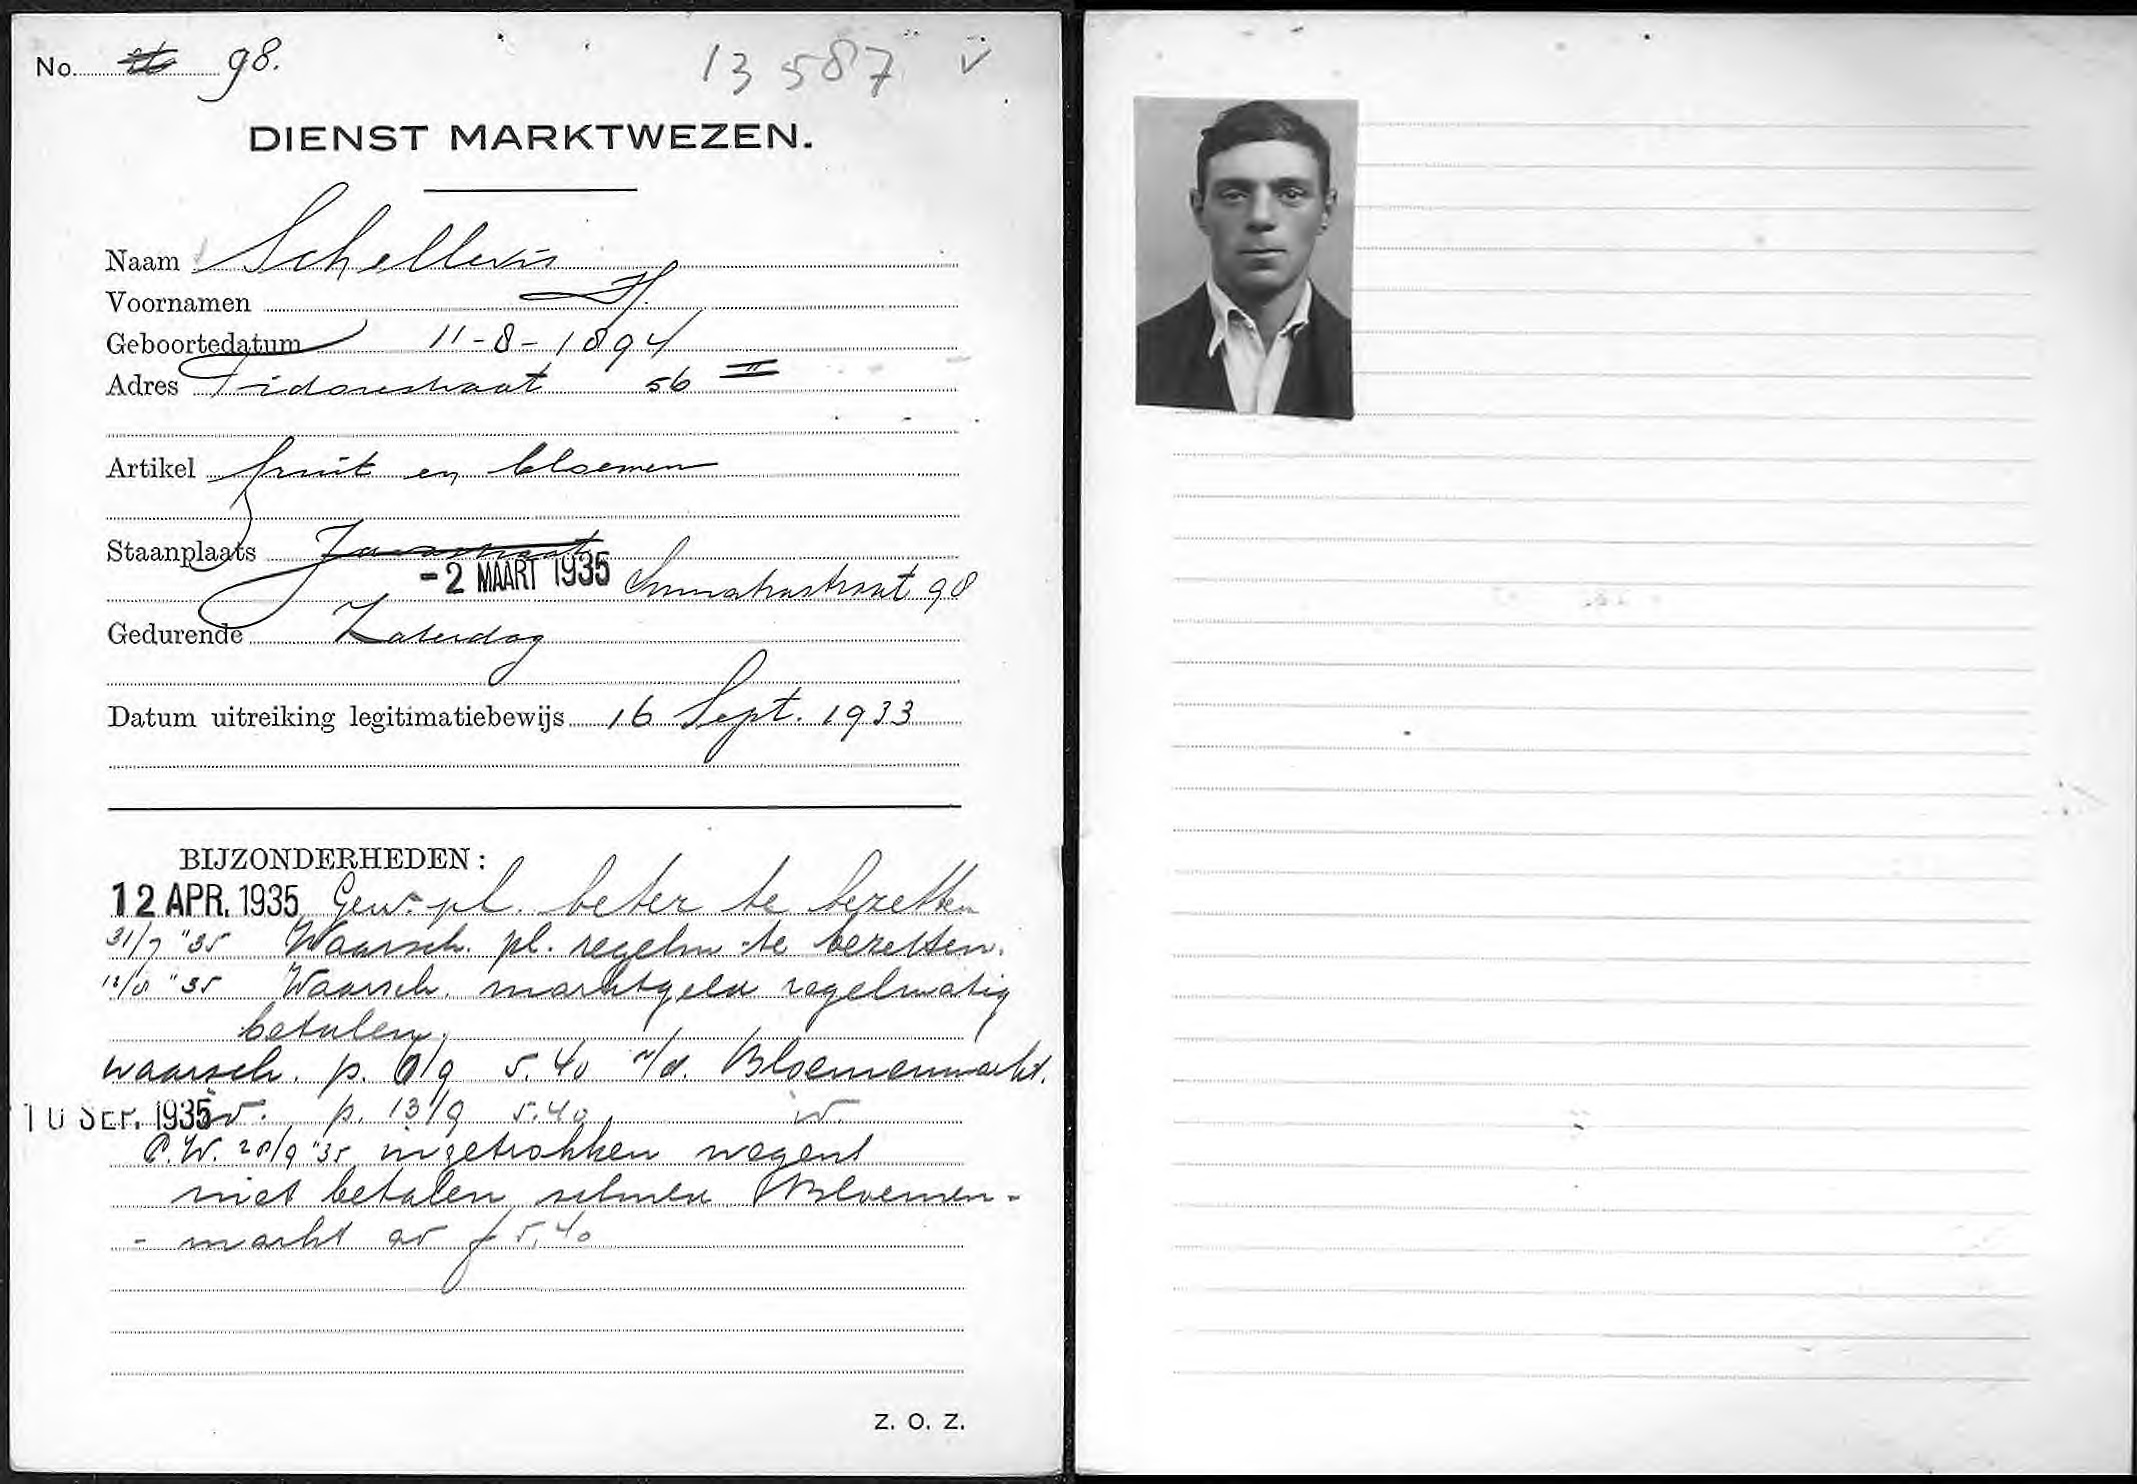 No. 98.
13587 v
DIENST MARKTWEZEN.
Naam Schellevis
Voornamen H.
Geboortedatum 11-8-1894
Adres Tidorestraat 56 II
Artikel fruit en bloemen
Staanplaats Javastraat
-2 MAART 1935 Sumatrastraat 98
Gedurende Zaterdag
Datum uitreiking legitimatiebewijs 16 Sept. 1933
BIJZONDERHEDEN:
12 APR. 1935 Gew. pl. beter te bezetten
31/7 "35 Waarsch. pl. regelm te bezetten.
"35 Waarsch. marktgeld regelmatig
betalen.
waarsch. p. 6/9 5.40 a/d. Bloemenmarkt.
10 SEP. 1935 p. 13/9 5.40
P.W. 20/9 "35 ingetrokken wegens
niet betalen schuld Bloemen-
-markt ad f 5,40
Z. O. Z.